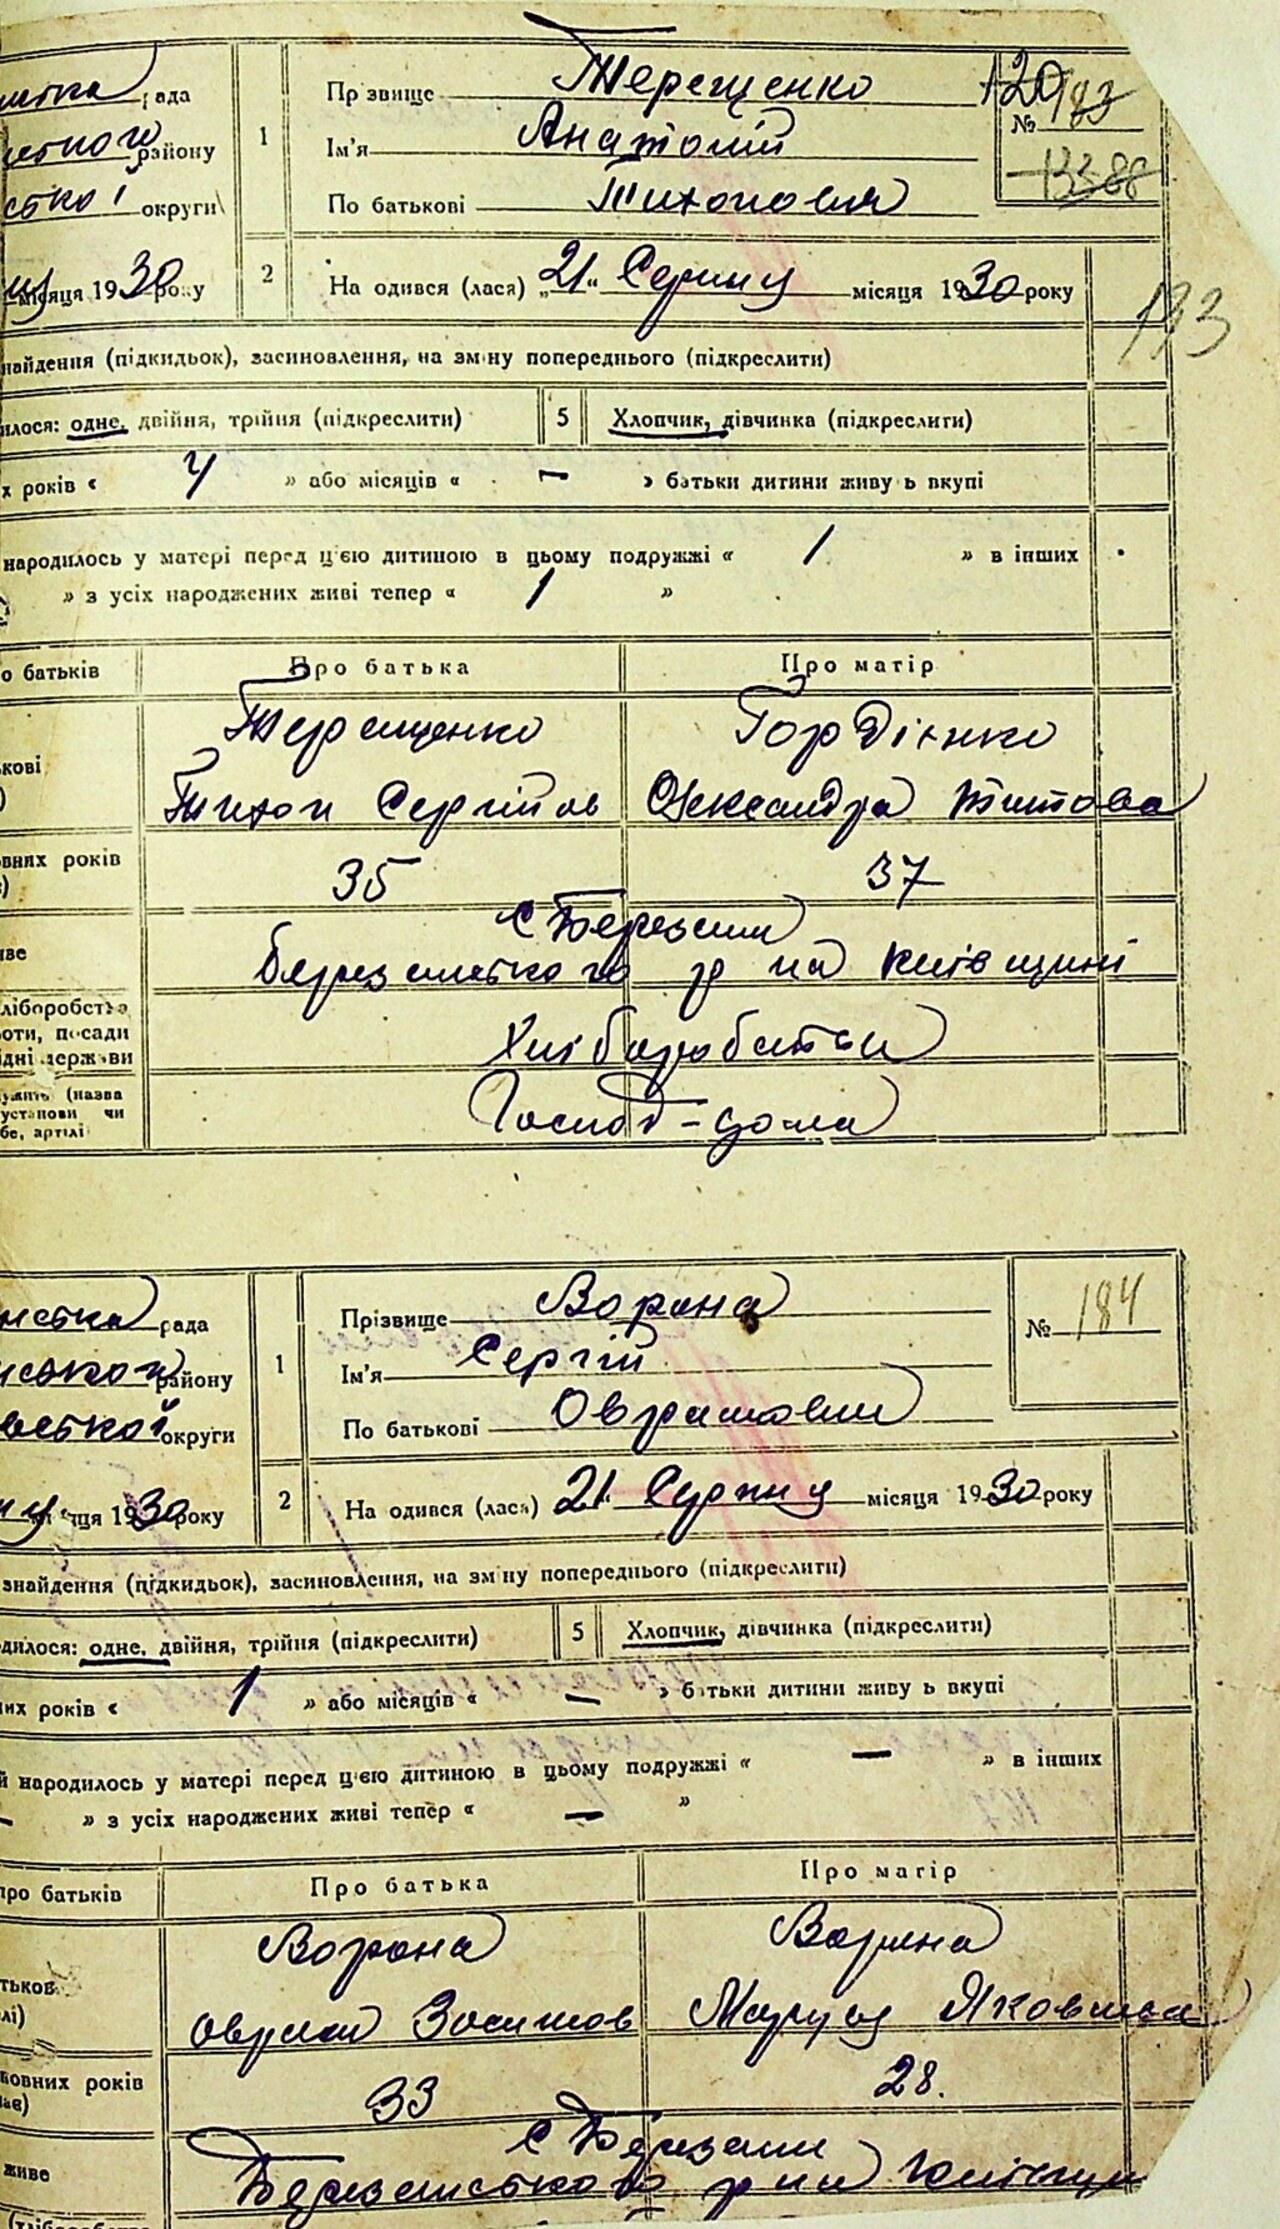 рада
району
округи
місяця 1930 року
1
Пр звище Терещенко
Ім'я Анатолій
По батькові Тихонович
120 183
№
1388
2
На одився (лася) „21“ Серпня місяця 1930 року
193
найдення (підкидьок), засиновлення, на зміну попереднього (підкреслити)
илося: одне, двійня, трійня (підкреслити) 5 Хлопчик, дівчинка (підкреслити)
х років « 4 » або місяців « — » батьки дитини живу ь вкупі
народилось у матері перед цією дитиною в цьому подружжі « 1 » в інших
» з усіх народжених живі тепер « 1 »
о батьків Про батька Про матір
Терещенко Гордієнко
кові
Тихон Сергійов Олександра Титова
) 
вних років 35 37
)
с Березані
иве
Березанського р на Київщині
ліборобство
оти, посади
ідні держави
Хліборобство
ужить (назва
установи чи
бе, артілі
Господ-дома
рада
району
округи
ця 1930 року
1
Прізвище Ворона
Ім'я Сергій
По батькові Оврамович
№ 184
2
На одився (лася) 21 Серпня місяця 1930 року
знайдення (підкидьок), засиновлення, на зміну попереднього (підкреслити)
дилося: одне, двійня, трійня (підкреслити) 5 Хлопчик, дівчинка (підкреслити)
их років « 1 » або місяців « — » батьки дитини живу ь вкупі
й народилось у матері перед цією дитиною в цьому подружжі « — » в інших
— » з усіх народжених живі тепер « — »
про батьків Про батька Про матір
Ворона Ворона
тьков
лі)
Оврам Зосимов Маруся Яковлева
ковних років 33 28.
ає)
с Березані
живе
Березанського р на Київщині
(хлібороб